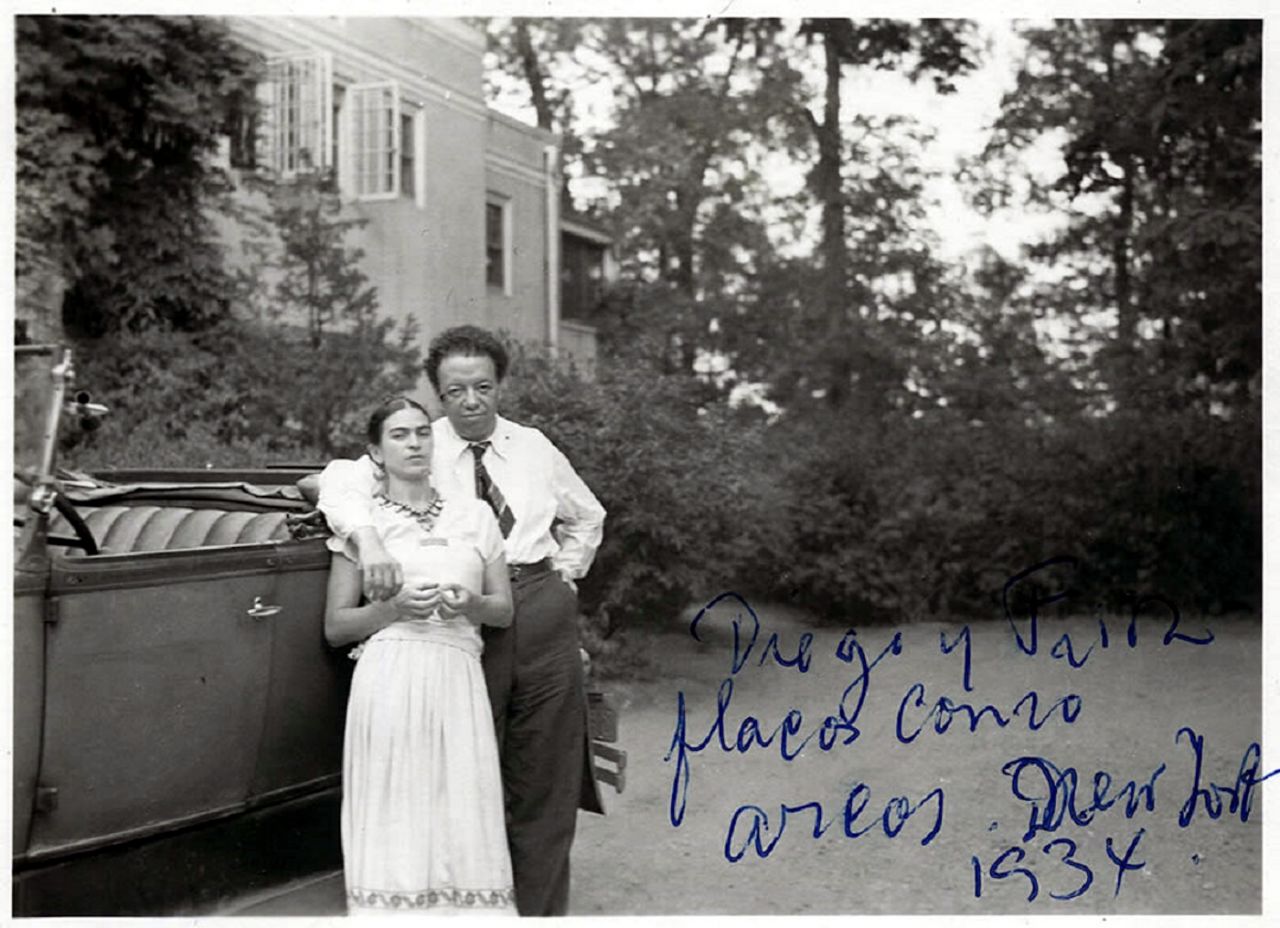 Diego y Frida
flacos como
arcos. New York
1934.